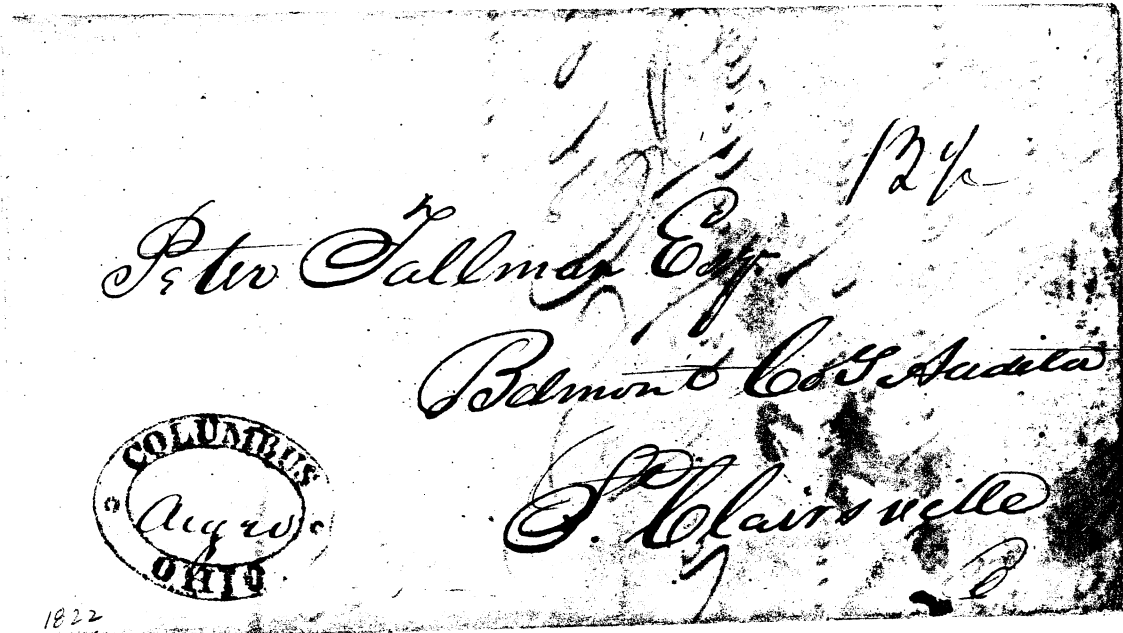 12½
Peter Tallman Esqr
Belmont Co Auditor
St. Clairsville
COLUMBUS
Aug 20
OHIO
1822